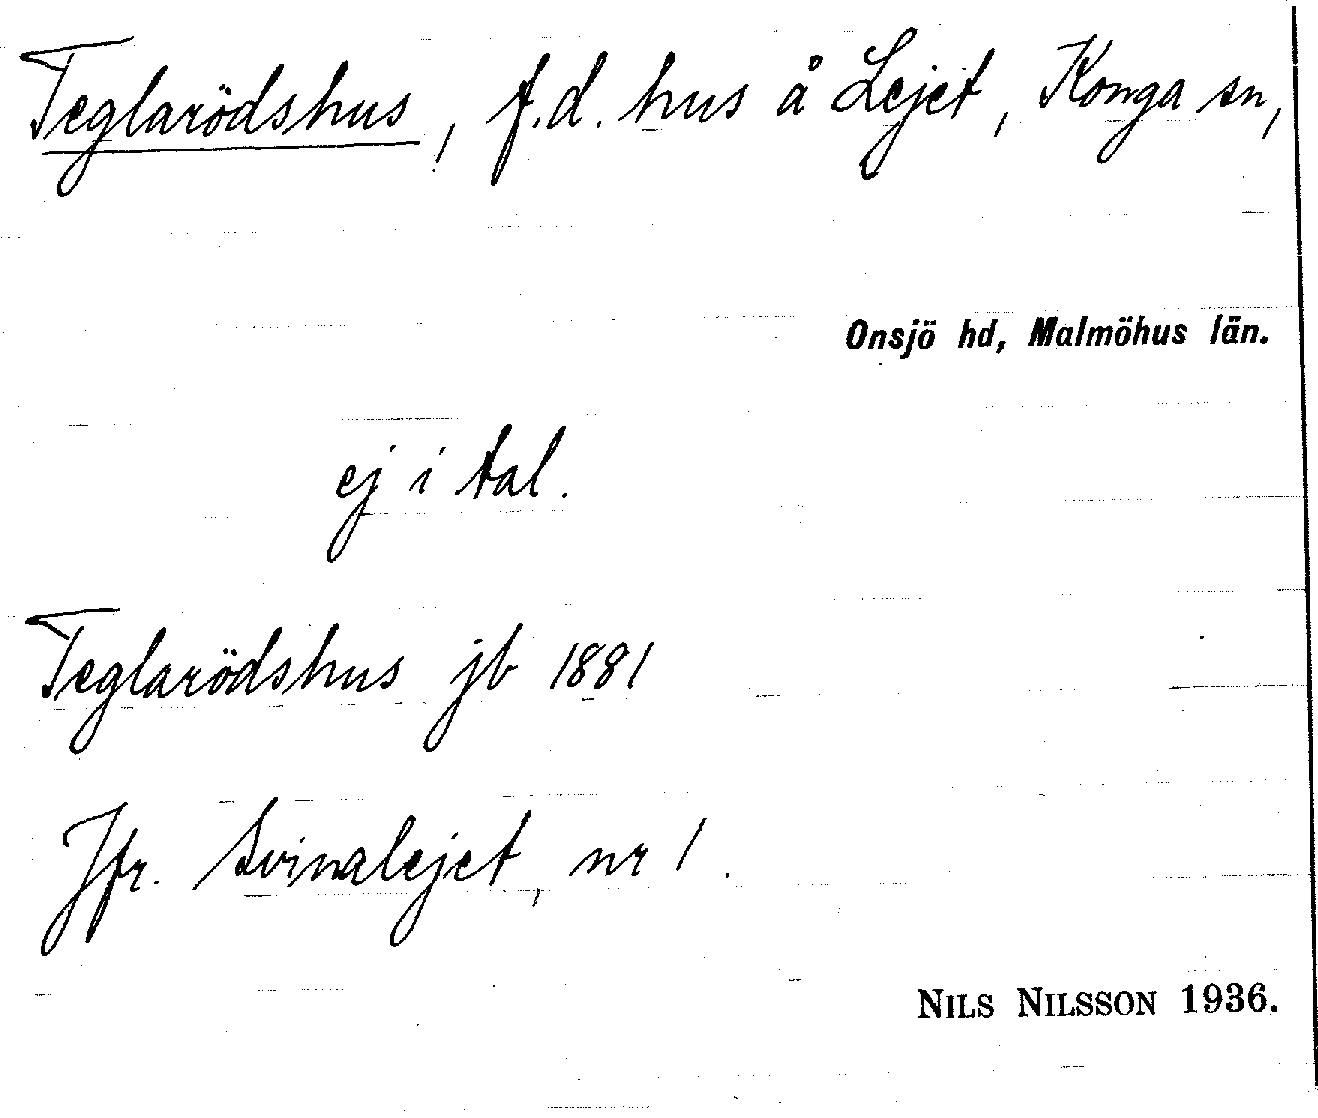 Teglarödshus, f.d. hus å Lejet, Konga sn,
Onsjö hd, Malmöhus län.
ej i tal.
Teglarödshus jb 1881
Jfr. Svinalejet, nr 1.
NILS NILSSON 1936.